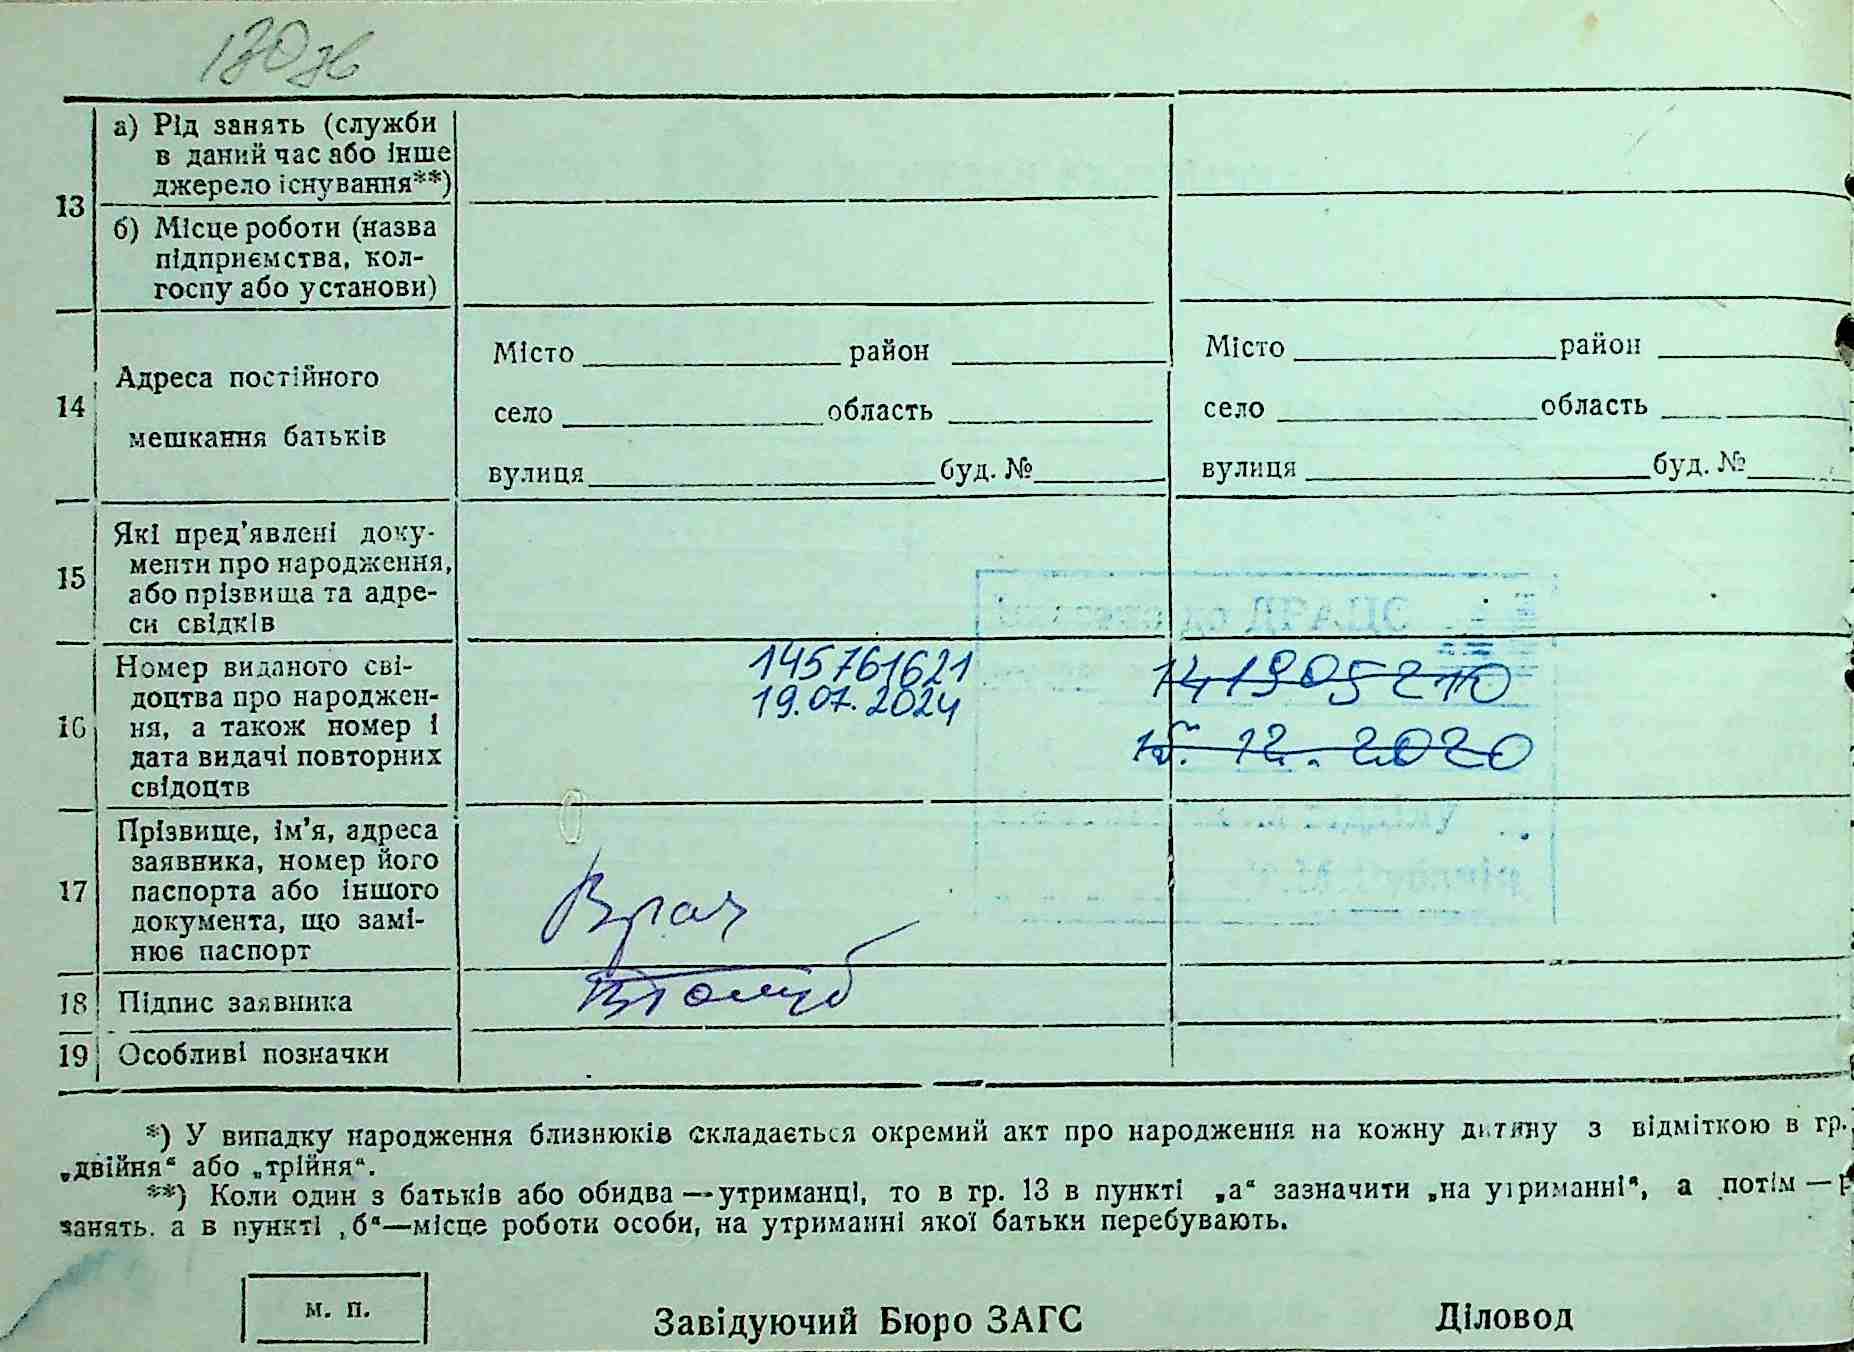 13
а) Рід занять (служби
в даний час або інше
джерело існування**)
б) Місце роботи (назва
підприємства, кол-
госпу або установи)
14
Адреса постійного
мешкання батьків
Місто район
село область
вулиця буд. №
Місто район
село область
вулиця буд. №
15
Які пред'явлені доку-
менти про народження,
або прізвища та адре-
си свідків
до ДРАЦС
16
Номер виданого сві-
доцтва про народжен-
ня, а також номер і
дата видачі повторних
свідоцтв
145761621
19.07.2024
15.12.2020
17
Прізвище, ім'я, адреса
заявника, номер його
паспорта або іншого
документа, що замі-
нює паспорт
Врач
18
Підпис заявника
19
Особливі позначки
*) У випадку народження близнюків складається окремий акт про народження на кожну дитину з відміткою в гр.
„двійня“ або „трійня“.
**) Коли один з батьків або обидва—утриманці, то в гр. 13 в пункті „а“ зазначити „на утриманні“, а потім—
занять, а в пункті „б“—місце роботи особи, на утриманні якої батьки перебувають.
м. п.
Завідуючий Бюро ЗАГС
Діловод